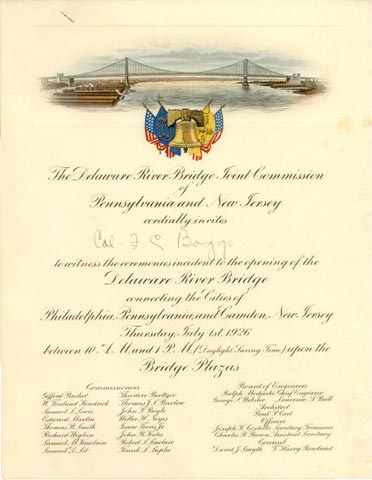 The Delaware River Bridge Joint Commission
of
Pennsylvania and New Jersey
cordially invites
Col. F C Boggs
to witness the ceremonies incident to the opening of the
Delaware River Bridge
connecting the Cities of
Philadelphia, Pennsylvania, and Camden, New Jersey
Thursday, July 1st, 1926
between 10 A.M. and 1 P.M. (Daylight Saving Time) upon the
Bridge Plazas
Commissioners
Gifford Pinchot
W. Freeland Kendrick
Samuel L. Lewis
Edward Martin
Thomas B. Smith
Richard Weglein
Samuel M. Vauclain
Samuel D. Lit
Theodore Boettger
Thomas J. S. Barlow
John F. Boyle
Isaac Ferris Jr.
John B. Kates
Robert L. Sinclair
Frank L. Suplee
Board of Engineers
Ralph Modjeski Chief Engineer
George S. Webster Laurence A. Ball
Architect
Paul P. Cret
Officers
Joseph K. Costello Secretary Treasurer
Charles R. Bacon Assistant Secretary
Counsel
David J. Smyth T. Harry Rowland